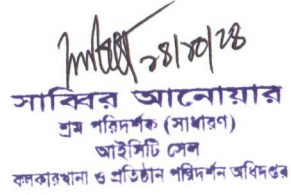 ২৪/১০/২৪
সাব্বির আনোয়ার
শ্রম পরিদর্শক (সাধারণ)
আইসিটি সেল
কলকারখানা ও প্রতিষ্ঠান পরিদর্শন অধিদপ্তর